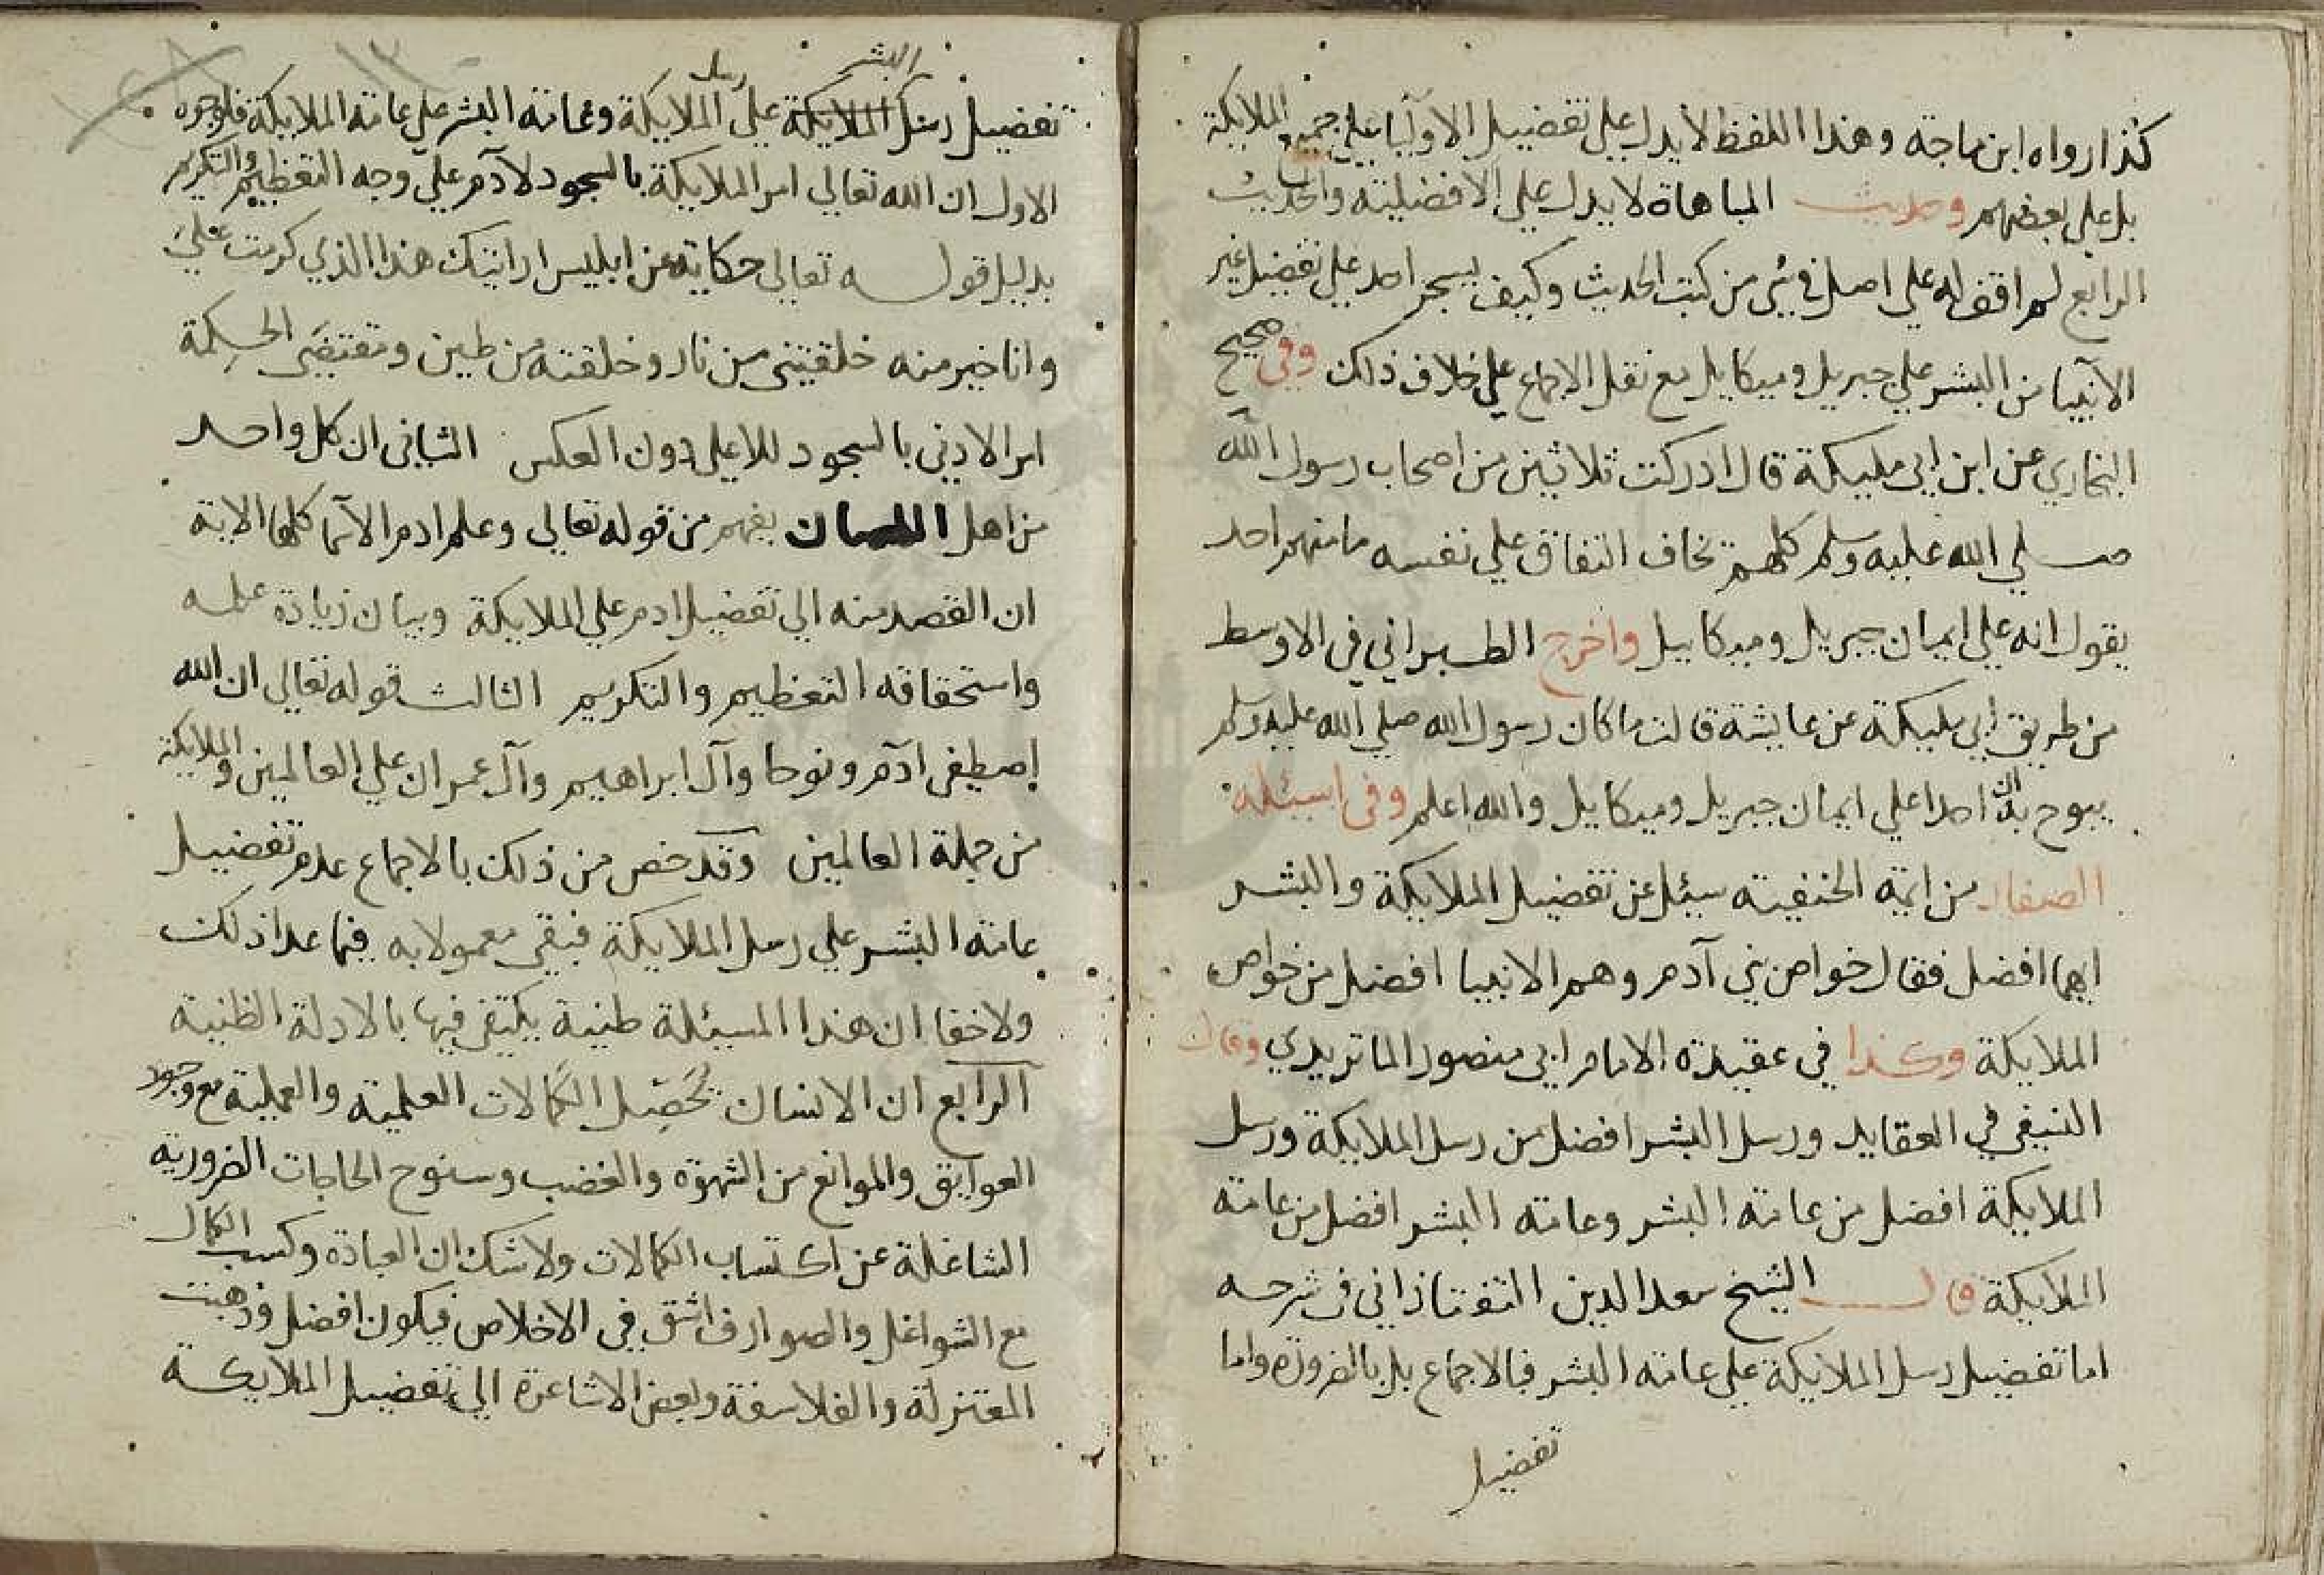 كذا رواه ابن ماجة وهذا اللفظ لا يدل علي تفضيل الاوليا علي جميع الملايكة
بل علي بعضهم وحديث المباهاة لا يدل علي الافضلية والحديث
الرابع لم اقف له علي اصل في شي من كتب الحديث وكيف يسجر احد علي تفضيل غير
الانبيا من البشر علي جبريل وميكايل مع نقل الاجماع علي خلاف ذلك وفي صحيح
البخاري عن ابن ابي مليكة قال ادركت ثلاثين من اصحاب رسول الله
صلي الله عليه وسلم كلهم يخاف النفاق علي نفسه ما منهم احد
يقول انه علي ايمان جبريل وميكاييل واخرج الطبراني في الاوسط
من طريق ابي مليكة عن عايشة قالت ما كان رسول الله صلي الله عليه وسلم
يبوح بان احدا علي ايمان جبريل وميكايل والله اعلم وفي اسئلة
الصفار من ايمة الحنفية سئل عن تفضيل الملايكة والبشر
ايهما افضل فقال خواص بني آدم وهم الانبيا افضل من خواص
الملايكة وكذا في عقيدة الامام ابي منصور الماتريدي وقال
النسفي في العقايد ورسل البشر افضل من رسل الملايكة ورسل
الملايكة افضل من عامة البشر وعامة البشر افضل من عامة
الملايكة قال الشيخ سعد الدين التفتازاني في شرحه
اما تفضيل رسل الملايكة علي عامة البشر فبالاجماع بل بالضرورة واما
تفضيل
البشر رسل
تفضيل رسل الملايكة علي الملايكة وعامة البشر علي عامة الملايكة فلوجوه
الاول ان الله تعالي امر الملايكة بالسجود لادم علي وجه التعظيم والتكريم
بدليل قوله تعالي حكاية عن ابليس ارايتك هذا الذي كرمت علي
وانا خير منه خلقتني من نار وخلقته من طين ومقتضي الحكمة
امر الادني بالسجود للاعلي دون العكس الثاني ان كل واحد
من اهل اللسان يفهم من قوله تعالي وعلم ادم الاسما كلها الاية
ان القصد منه الي تفضيل ادم علي الملايكة وبيان زيادة علمه
واستحقاقه التعظيم والتكريم الثالث قوله تعالي ان الله
اصطفي آدم ونوحا وآل ابراهيم وآل عمران علي العالمين والملايكة
من جملة العالمين وقد خص من ذلك بالاجماع عدم تفضيل
عامة البشر علي رسل الملايكة فبقي معمولا به فيما عدا ذلك
ولا خفا ان هذا المسئلة ظنية يكتفي فيها بالادلة الظنية
الرابع ان الانسان يحصل الكمالات العلمية والعملية مع وجود
العوايق والموانع من الشهوة والغضب وسنوح الحاجات الضرورية
الشاغلة عن اكتساب الكمالات ولا شك ان العبادة وكسب الكمال
مع الشواغل والصوارف اشق في الاخلاص فيكون افضل وذهبت
المعتزلة والفلاسفة وبعض الاشاعرة الي تفضيل الملايكة